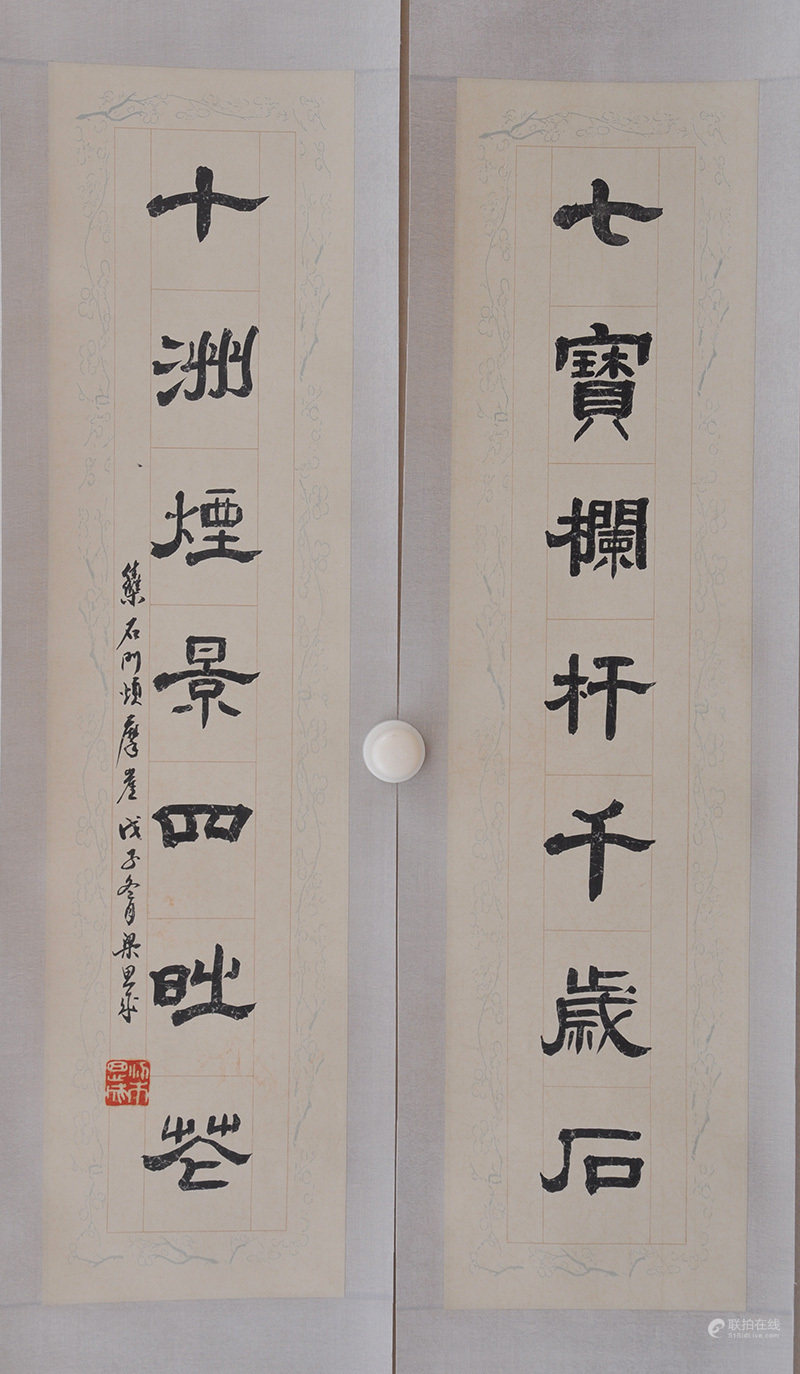 七寶欄杆千歲石
十洲煙景四時花
集石門頌摩崖戊子冬月梁思成
联拍在线
518idLive.com